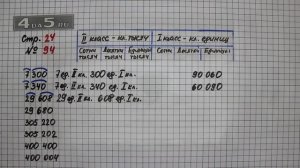 4ДАSR
Стр. 24
№ 94
II класс - кл. тысяч
I класс - кл. единиц
Сотни тысяч
Десятки тысяч
Единицы тысяч
Сотни
Десятки
Единицы
7 300 7 ед. II кл. 300 ед. I кл. 90 060
7 340 7 ед. II кл. 340 ед. I кл. 60 090
29 608 29 ед. II кл. 608 ед. I кл.
29 680
305 220
305 202
400 400
400 004